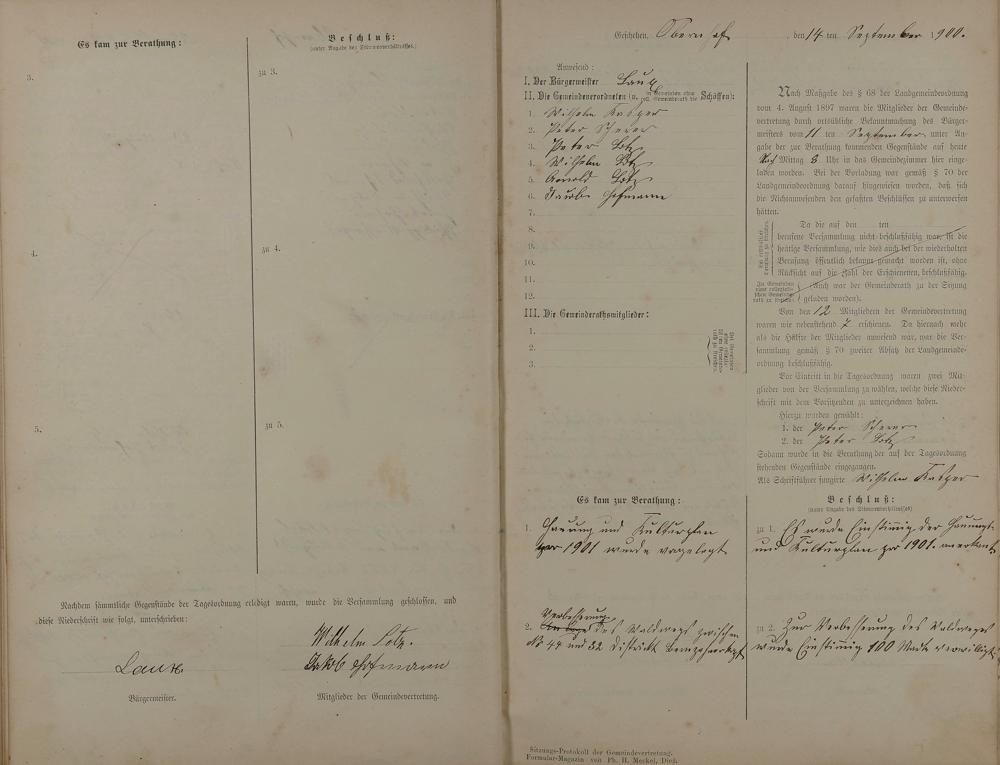 Es kam zur Berathung:
Beschluß:
(unter Angabe des Stimmenverhältnisses.)
3.
zu 3.
4.
zu 4.
5.
zu 5.
Nachdem sämmtliche Gegenstände der Tagesordnung erledigt waren, wurde die Versammlung geschlossen, und
diese Niederschrift wie folgt, unterschrieben:
Laux
Wilhelm Lotz.
Jakob Hofmann
Bürgermeister.
Mitglieder der Gemeindevertretung.
Geschehen, Obernhof, den 14 ten September 1900.
Anwesend:
I. Der Bürgermeister Laux
II. Die Gemeindeverordneten (u. in Gemeinden ohne coll. Gemeinderath die Schöffen):
1. Wilhelm Kasper
2. Peter Scherer
3. Peter Lotz
4. Wilhelm Lotz
5. Arnold Lotz
6. Jacob Hofmann
7.
8.
9.
10.
11.
12.
III. Die Gemeinderathsmitglieder:
1.
2.
3.
Nach Maßgabe des § 68 der Landgemeindeordnung
vom 4. August 1897 waren die Mitglieder der Gemeinde-
vertretung durch ortsübliche Bekanntmachung des Bürger-
meisters vom 11 ten September unter An-
gabe der zur Berathung kommenden Gegenstände auf heute
Nach Mittag 8 Uhr in das Gemeindezimmer hier einge-
laden worden. Bei der Vorladung war gemäß § 70 der
Landgemeindeordnung darauf hingewiesen worden, daß sich
die Nichtanwesenden den gefaßten Beschlüssen zu unterwerfen
hätten.
Da die auf den ten
berufene Versammlung nicht beschlußfähig war, ist die
heutige Versammlung, wie dies auch bei der wiederholten
Berufung öffentlich bekannt gemacht worden ist, ohne
Rücksicht auf die Zahl der Erschienenen, beschlußfähig.
(Auch war der Gemeinderath zu der Sitzung
geladen worden).
Von den 12 Mitgliedern der Gemeindevertretung
waren wie nebenstehend 7 erschienen. Da hiernach mehr
als die Hälfte der Mitglieder anwesend war, war die Ver-
sammlung gemäß § 70 zweiter Absatz der Landgemeinde-
ordnung beschlußfähig.
Vor Eintritt in die Tagesordnung waren zwei Mit-
glieder von der Versammlung zu wählen, welche diese Nieder-
schrift mit dem Vorsitzenden zu unterzeichnen haben.
Hierzu wurden gewählt:
1. der Peter Scherer
2. der Peter Lotz
Sodann wurde in die Berathung der auf der Tagesordnung
stehenden Gegenstände eingegangen.
Als Schriftführer fungirte Wilhelm Kasper
Es kam zur Berathung:
Beschluß:
(unter Angabe des Stimmenverhältnisses)
1. Hauung und Kulturplan
per 1901 wurde vorgelegt
zu 1. Es wurde Einstimig der Hauungs-
und Kulturplan pro 1901. anerkant
2. Verbesserung des Waldwegs zwischen
No 44 und 52 District
zu 2. Zur Verbesserung des Waldweges
wurde Einstimig 100 Mark verwilligt.
Sitzungs-Protokoll der Gemeindevertretung.
Formular-Magazin von Ph. H. Meckel, Diez.